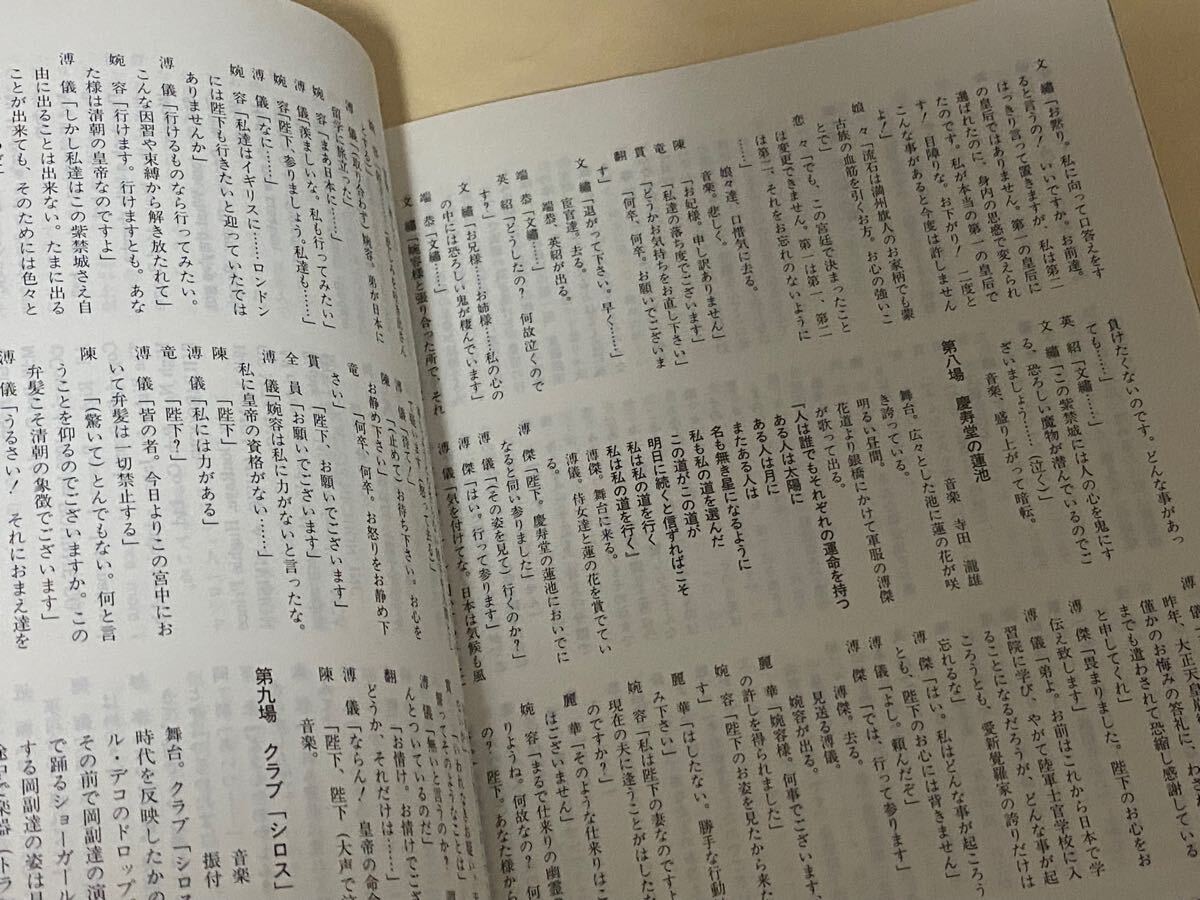 文 繡「お黙り。私に向って口答えをす
ると言うの! いいですか。お前達。
はっきり言って置きますが、私は第二
の皇后ではありません。第一の皇后に
選ばれたのに、身内の思惑で変えられ
たのです。私が本当の第一の皇后で
す! 目障りな。お下がり! 二度と
こんな事があると今度は許しません
よ!」
娘 々「流石は満州旗人のお家柄でも蒙
古族の血筋を引くお方。お心の強いこ
とで」
恋 々「でも、この宮廷で決まったこと
は変更できません。第一は第一、第二
は第二、それをお忘れのないように
……」
娘々達、口惜気に去る。
音楽。悲しく。
陳 「お妃様。申し訳ありません」
竜 「私達の落ち度でございます」
貫 「どうかお気持ちをお直し下さい」
翻 「何卒、何卒。お願いでございま
す」
文 繡「退がって下さい。早く……」
宦官達。去る。
端恭、英紹が出る。
端 恭「文繡……」
英 紹「どうしたの? 何故泣くので
すか?」
文 繡「お兄様……お姉様……私の心の
の中には恐ろしい鬼が棲んでいます」
端 恭「文繡……」
文 繡「婉容様と張り合った所で、それ
負けたくないのです。どんな事があっ
ても……」
英 紹「文繡……」
文 繡「この紫禁城には人の心を鬼にす
る、恐ろしい魔物が潜んでいるのでご
ざいましょう……(泣く)」
音楽、盛り上がって暗転。
第八場 慶寿堂の蓮池
音楽 寺田 瀧雄
舞台。広々とした池に蓮の花が咲
き誇っている。
明るい昼間。
花道より銀橋にかけて軍服の溥傑
が歌って出る。
「人は誰でもそれぞれの運命を持つ
ある人は太陽に
ある人は月に
またある人は
名も無き星になるように
私も私の道を選んだ
この道がこの道が
明日に続くと信ずればこそ
私は私の道を行く
私は私の道を行く」
溥傑。舞台に来る。
溥儀。侍女達と蓮の花を賞でてい
る。
溥 傑「陛下。慶寿堂の蓮池においでに
なると伺い参りました」
溥 儀「(その姿を見て)行くのか?」
溥 傑「はい。行って参ります」
溥 儀「気を付けてな。日本は気候も風
昨年、大正天皇
僅かのお悔みの答礼に、わざ
までも遣わされて恐縮し感謝している
と申してくれ」
溥 傑「畏まりました。陛下のお心をお
伝え致します」
溥 儀「弟よ。お前はこれから日本で学
習院に学び、やがて陸軍士官学校に入
ることになるだろうが、どんな事が起
ころうとも、愛新覚羅家の誇りだけは
忘れるな」
溥 傑「はい。私はどんな事が起ころう
とも、陛下のお心には背きません」
溥 儀「よし。頼んだぞ」
溥 傑「では、行って参ります」
溥傑。去る。
見送る溥儀。
婉容が出る。
麗 華「婉容様。何事でございま
の許しを得られました」
婉 容「陛下のお姿を見たから来た
す」
麗 華「はしたない。勝手な行動
み下さい」
婉 容「私は陛下の妻なのですよ
現在の夫に逢うことがはしたな
のですか?」
麗 華「そのような仕来りはこ
はございません」
婉 容「まるで仕来りの幽霊の
りようね。何故なの? 何
の? 陛下。あなた様から
溥 儀「(取り合わず)婉容。弟が日本に
留学に旅立った」
婉 容「まあ日本に……」
溥 儀「羨ましいな。私も行ってみたい」
婉 容「陛下、参りましょう。私達も……」
溥 儀「なに……」
婉 容「私達はイギリスに……ロンドン
には陛下も行きたいと迎っていたでは
ありませんか」
溥 儀「行けるものなら行ってみたい。
こんな因習や束縛から解き放たれて」
婉 容「行けます。行けますとも。あな
た様は清朝の皇帝なのですよ」
溥 儀「しかし私達はこの紫禁城さえ自
由に出ることは出来ない。たまに出る
ことが出来ても、そのためには色々と
陳 「(止めて)お待ち下さい。お心を
お静め下さい」
竜 「何卒、何卒。お怒りをお静め下
さい」
貫 「陛下、お願いでございます」
全 員「お願いでございます」
溥 儀「婉容は私に力がないと言ったな。
私に皇帝の資格がない……」
陳 「陛下」
溥 儀「私には力がある」
竜 「陛下?」
溥 儀「皆の者。今日よりこの宮中にお
いて弁髪は一切禁止する」
陳 「(驚いて)とんでもない。何と言
うことを仰るのでございますか。この
弁髪こそ清朝の象徴でございます」
溥 儀「うるさい! それにおまえ達を
溥 儀「無いと言うのか?
んとついているのだ」
翻 「お情け。お情けでご
どうか、それだけは……」
溥 儀「ならん! 皇帝の命
陳 「陛下、陛下(大声で
音楽。
第九場 クラブ「シロス」
音楽
振付
舞台。クラブ「シロス
時代を反映したかの
ル・デコのドロップ
その前で岡副達の演
で踊るショーガール
する岡副達の姿は日